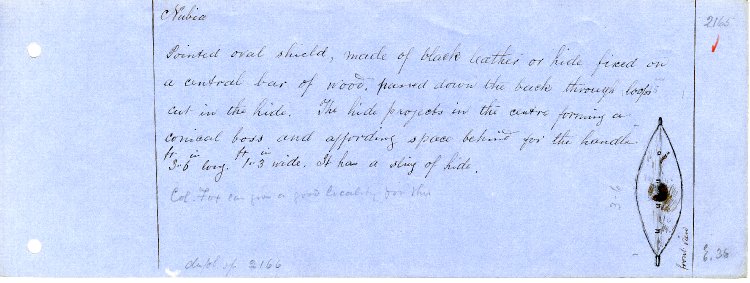 Nubia
2165
Pointed oval shield, made of black leather or hide fixed on
a central bar of wood, passed down the back through loops
cut in the hide. The hide projects in the centre forming a
conical boss and affording space behind for the handle
3 ft 6 in long. 1 ft 3 in wide. It has a sling of hide.
Col. Fox can give a good locality for this
3 6
front view
dupl of 2166